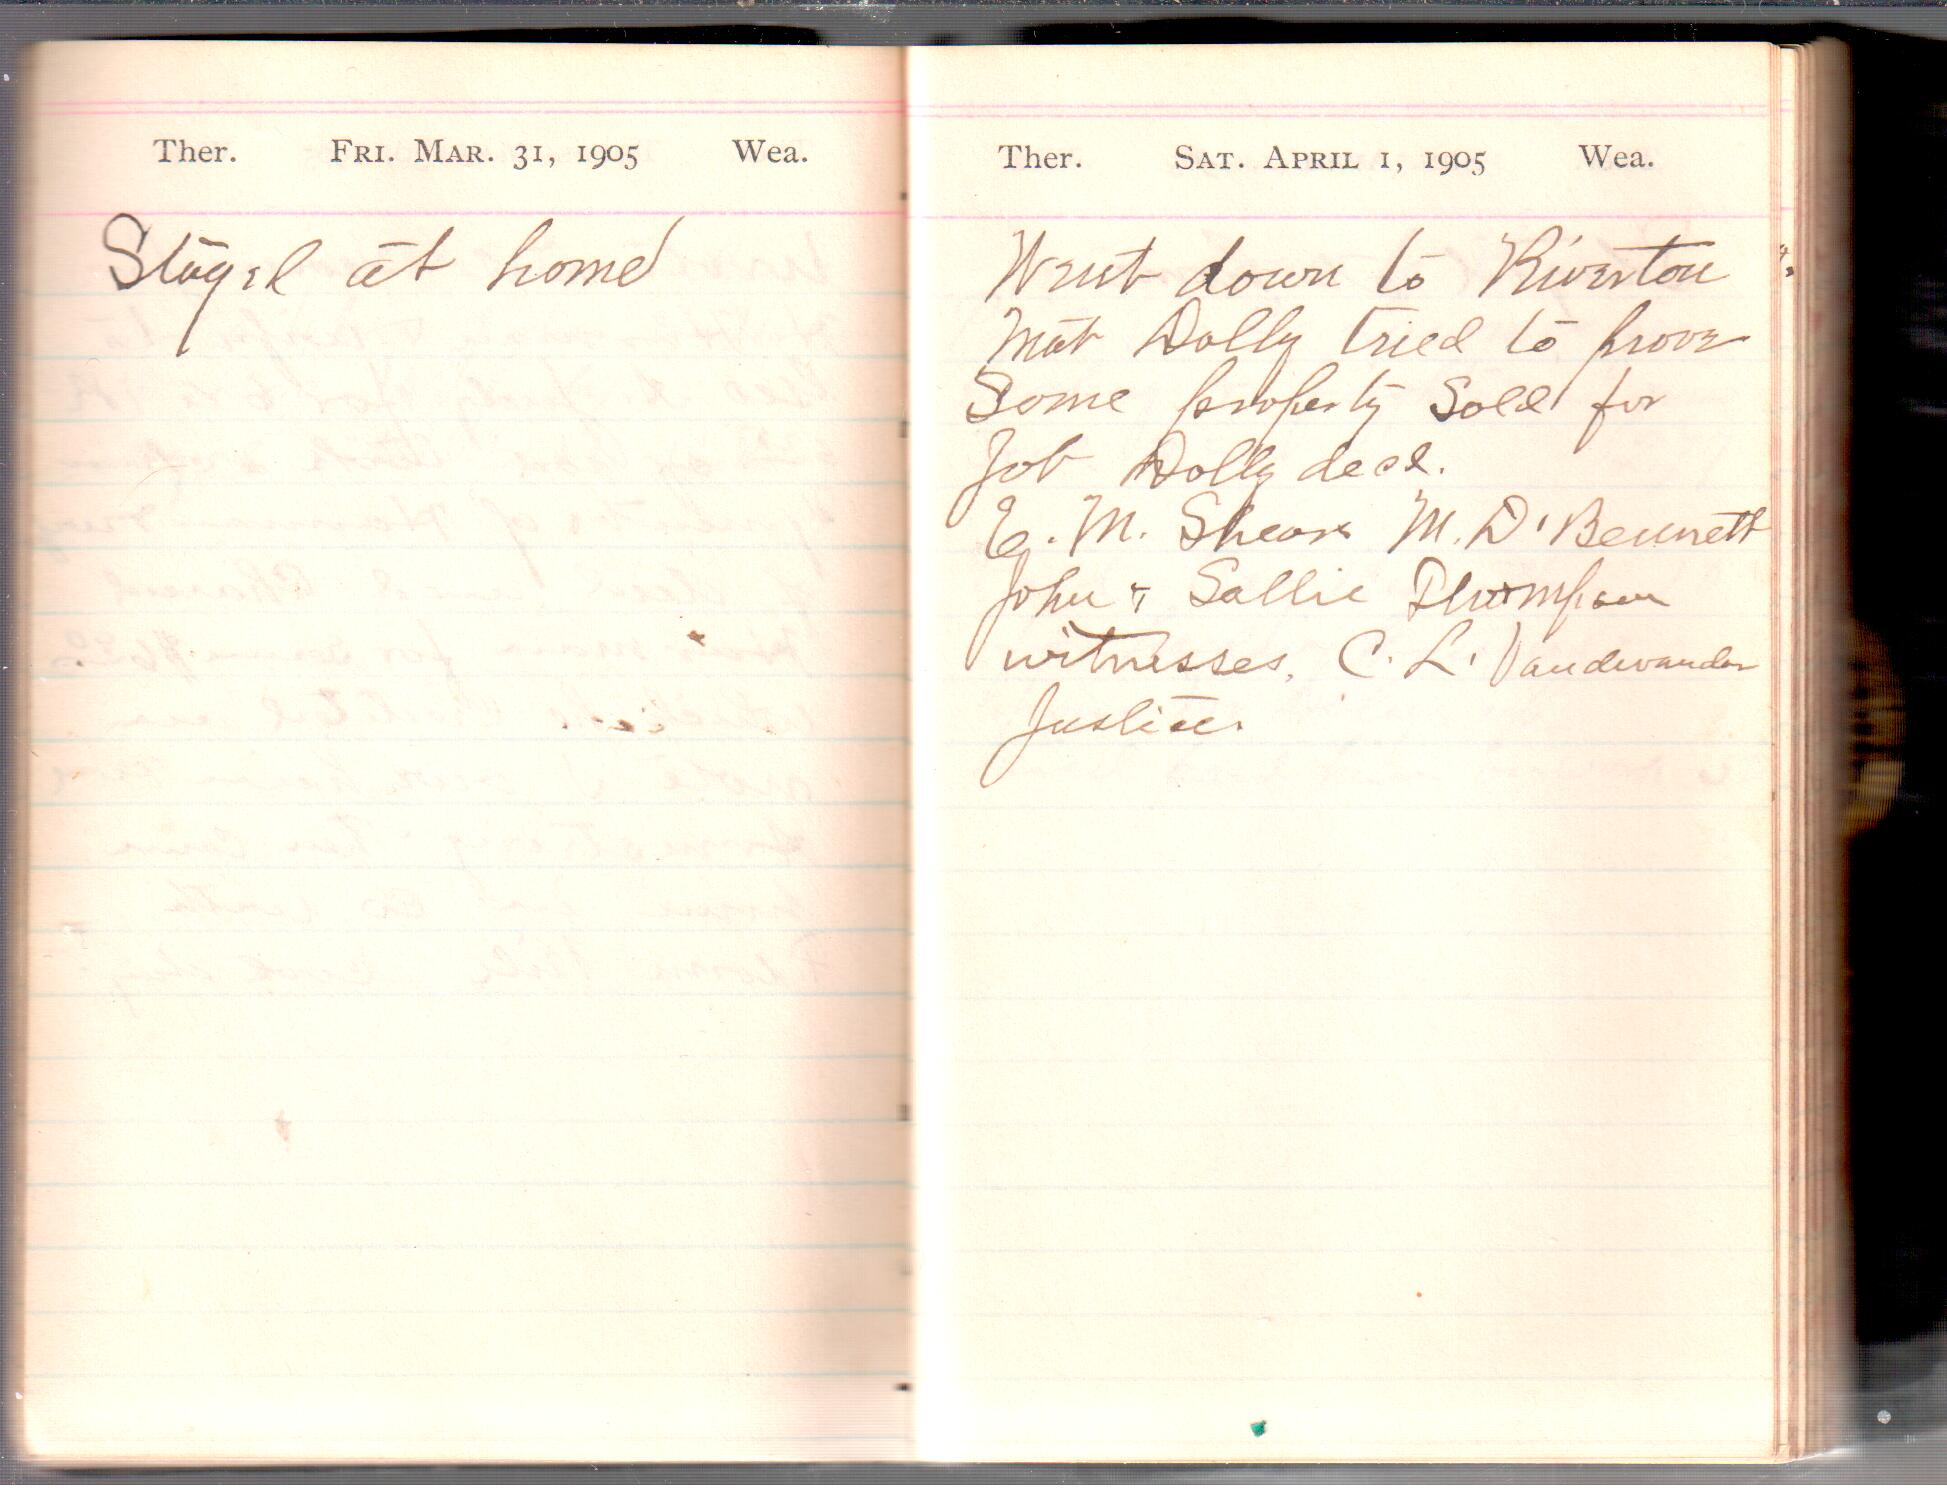 Ther. Fri. Mar. 31, 1905 Wea.
Stayed at home
Ther. Sat. April 1, 1905 Wea.
Went down to Riverton
Mat Dolly tried to prove
Some property Sold for
Job Dolly decd.
E. M. Shears M. D. Bennett
John & Sallie Thompson
witnesses, C. L. Vandevander
Justice.